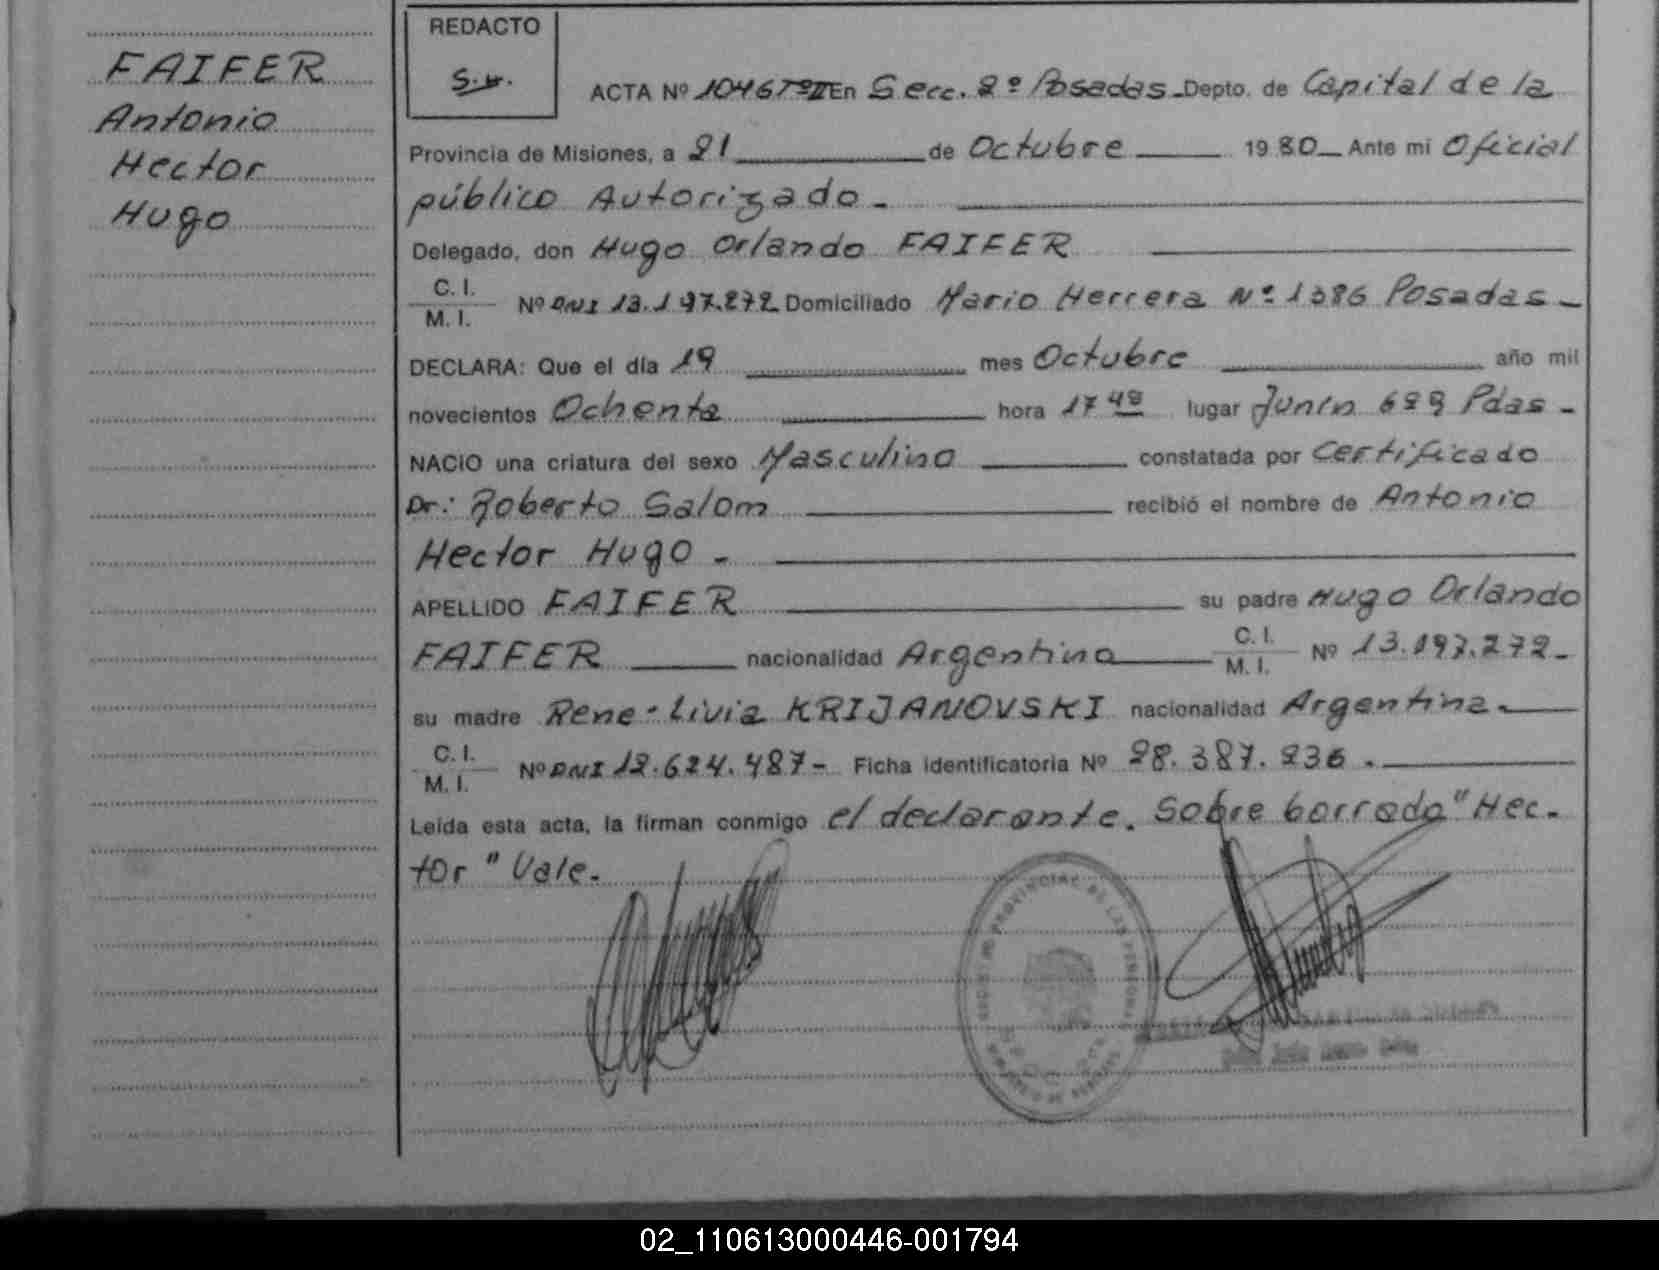 FAIFER
Antonio
Hector
Hugo
REDACTO
ACTA Nº 1046 Tº II En Secc. 2º Posadas Depto. de Capital de la
Provincia de Misiones, a 21 de Octubre 1980 Ante mi Oficial
público Autorizado.
Delegado, don Hugo Orlando FAIFER
C. I.
M. I. Nº DNI 13.197.272 Domiciliado Mario Herrera Nº 1386 Posadas
DECLARA: Que el día 19 mes Octubre año mil
novecientos Ochenta hora 17 40 lugar Junín 629 Pdas -
NACIO una criatura del sexo Masculino constatada por Certificado
Dr: Roberto Salom recibió el nombre de Antonio
Hector Hugo -
APELLIDO FAIFER su padre Hugo Orlando
FAIFER nacionalidad Argentina C. I. M. I. Nº 13.197.272-
su madre Rene-Livia KRIJANOVSKI nacionalidad Argentina.
C. I.
M. I. Nº DNI 12.624.487- Ficha identificatoria Nº 28.387.236.
Leída esta acta, la firman conmigo el declarante. Sobre borrado "Hec-
tor" Vale.
02_110613000446-001794